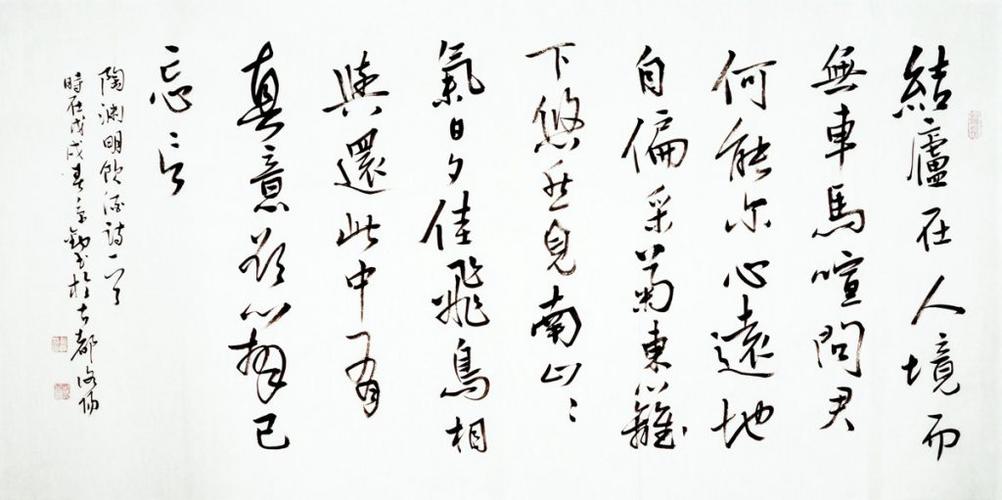 結廬在人境而
無車馬喧問君
何能尔心遠地
自偏采菊東籬
下悠然見南山山
氣日夕佳飛鳥相
與還此中有
真意欲辨已
忘言
陶淵明飲酒詩一首
時在戊戌春京勤書於古都洛陽